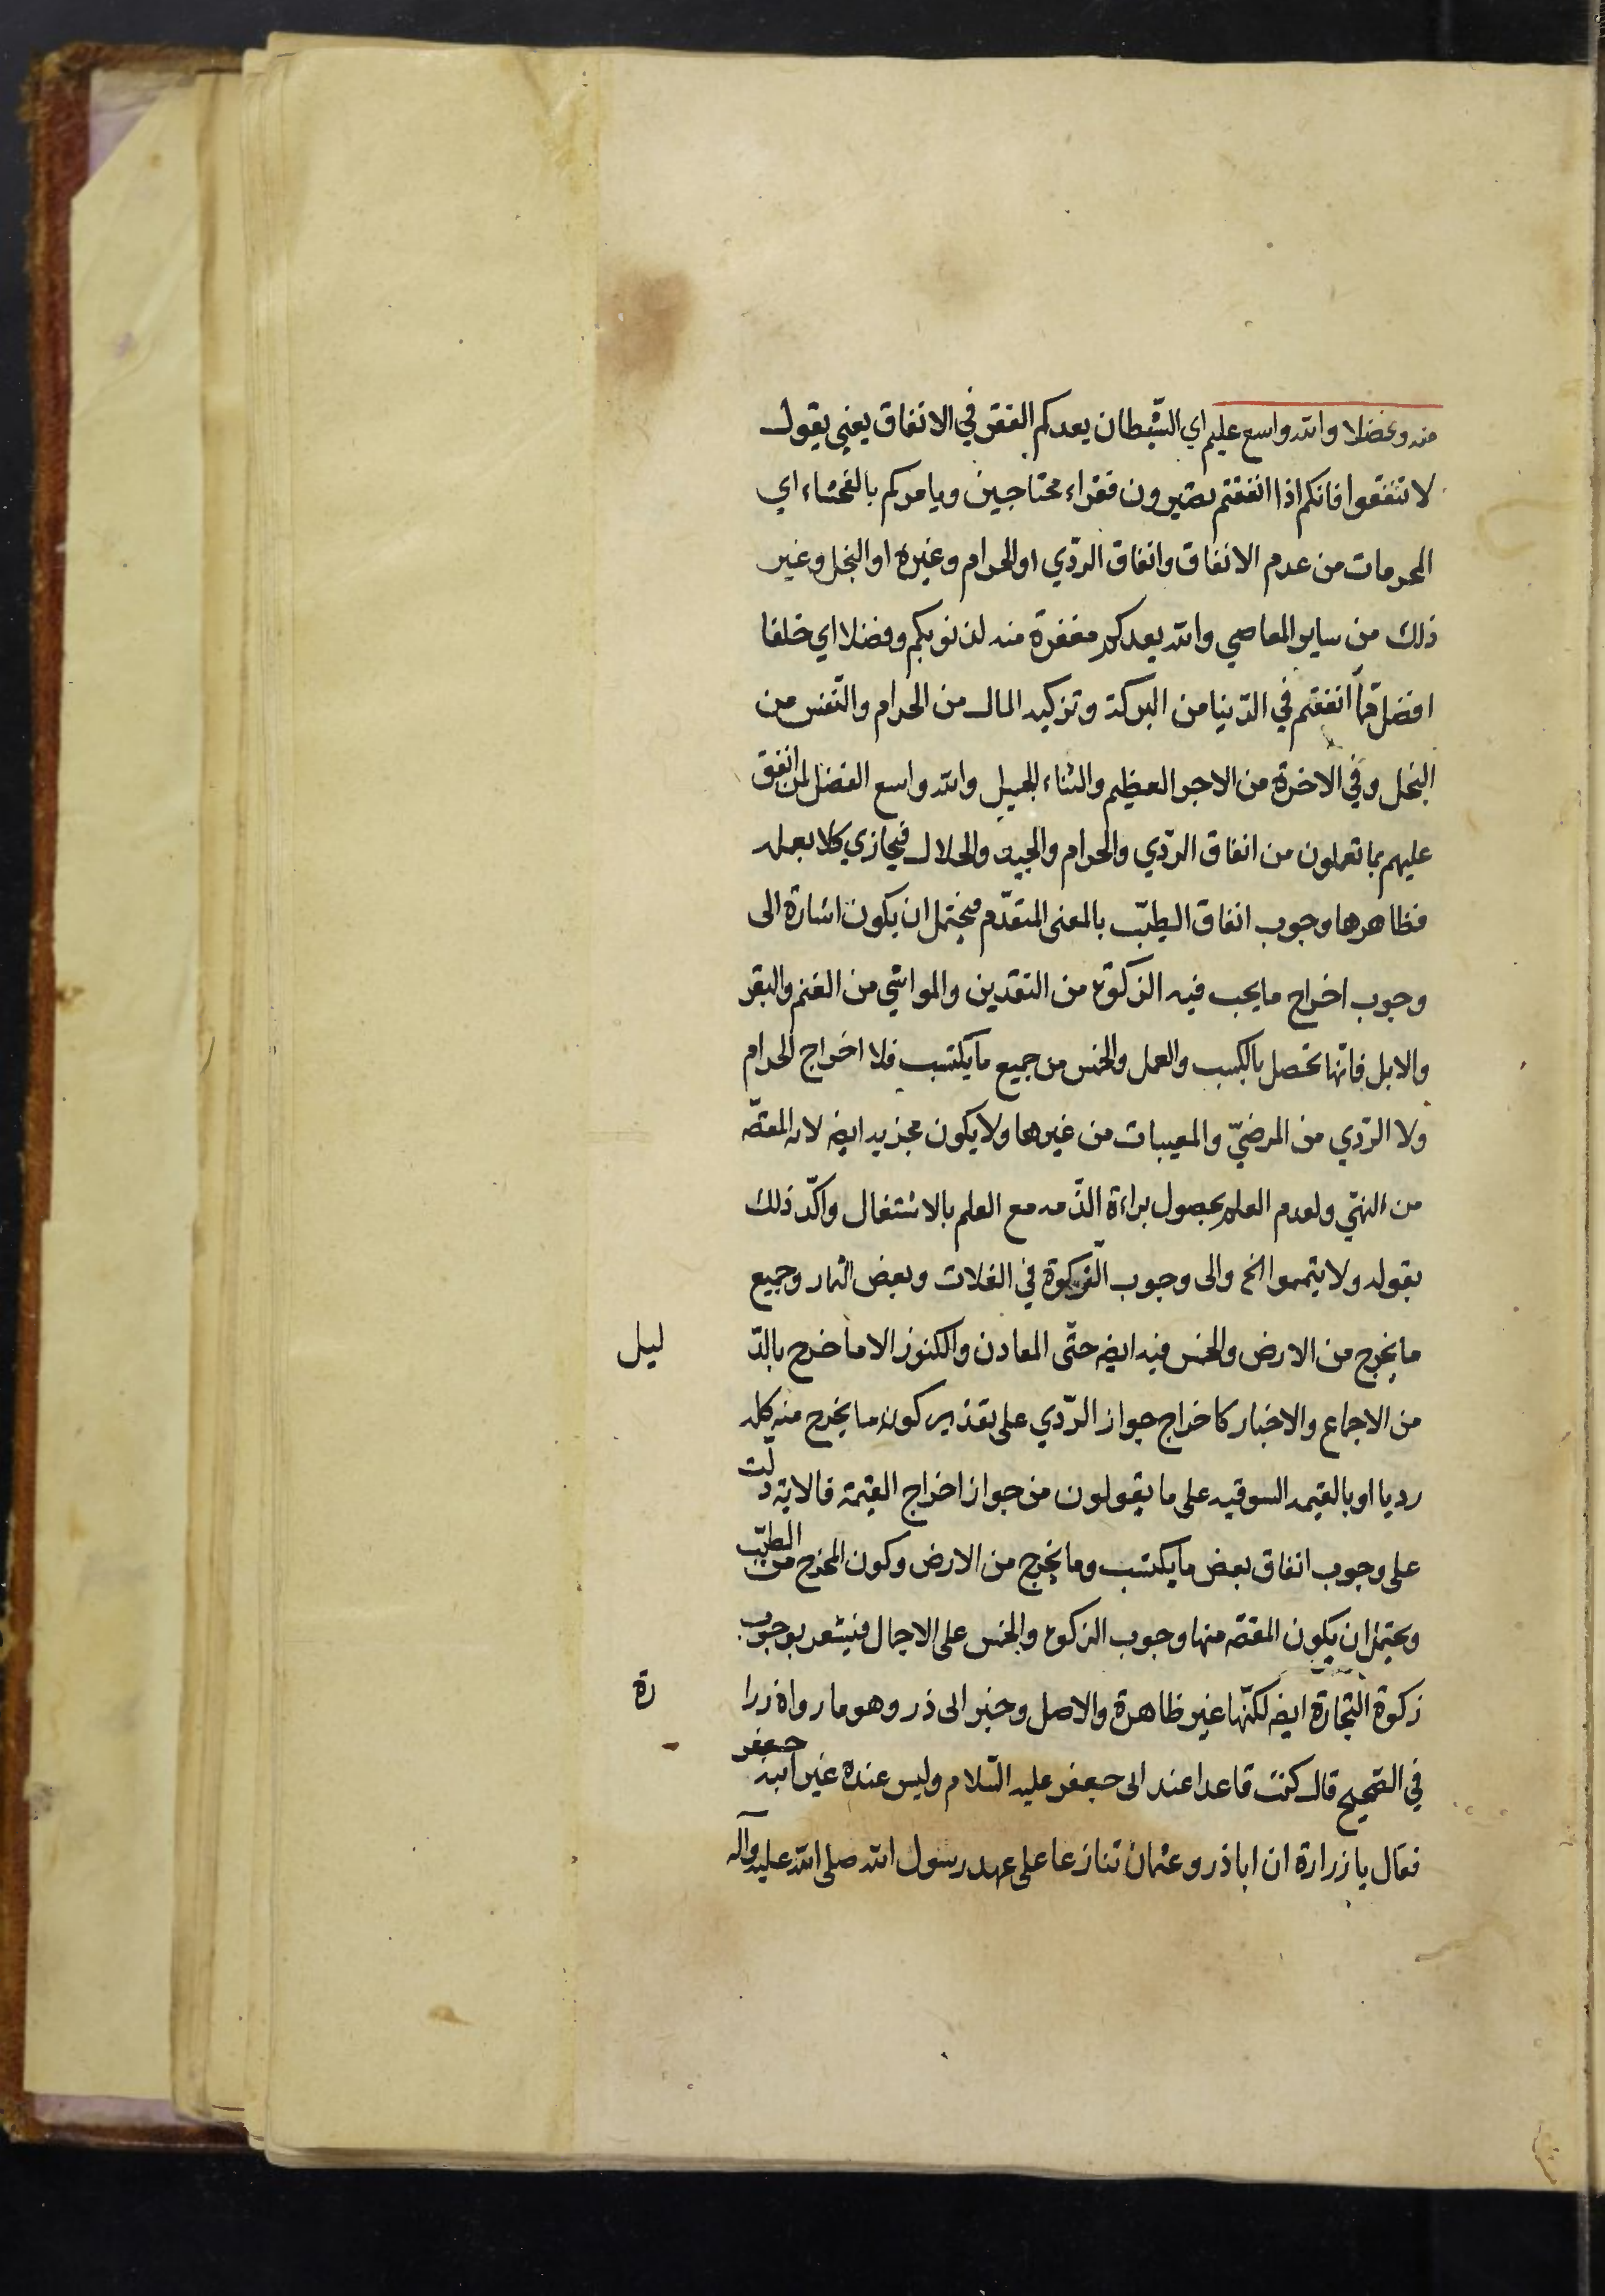 منه وفضلا والله واسع عليم اي الشّيطان يعدكم الفقر في الانفاق يعني يقول
لا تنفقوا فانكم اذا انفقتم تصيرون فقراء محتاجين ويامركم بالفحشاء اي
المحرمات من عدم الانفاق وانفاق الردّي او الحرام وغيره او البخل وغير
ذلك من ساير المعاصي والله يعدكم مغفرة منه لذنوبكم وفضلا اي خلفا
افضل ممّا انفقتم في الدّنيا من البركة وتزكيه المال من الحرام والنّفس من
البخل وفي الاخرة من الاجر العظيم والثناء الجميل والله واسع الفضل لمن انفق
عليهم بما تعملون من انفاق الردّي والحرام والجيد والحلال فيجازي كلا بعمله
فظاهرها وجوب انفاق الطيّب بالمعنى المتقدّم فيحتمل ان يكون اشارة الى
وجوب اخراج ما يجب فيه الزكوة من النقدين والمواشي من الغنم والبقر
والابل فانّها تحصل بالكسب والعمل والخمس من جميع ما يكتسب فلا اخراج الحرام
ولا الردّي من المرضيّ والمعيبات من غيرها ولا يكون مجزيه ايضه لانه المفهّه
من النهّي ولعدم العلم بحصول براءة الذّمه مع العلم بالاشتغال واكّد ذلك
بقوله ولا تيمموا الخ والى وجوب الزكوة في الغلات وبعض الثمار وجميع
ما يخرج من الارض والخمس فيه ايضه حتّى المعادن والكنوز الا ما خرج بالدّ
ليل
من الاجماع والاخبار كاخراج جواز الردّي على تقدير كون ما يخرج منه كله
رديا او بالقيمه السوقيه على ما يقولون من جواز اخراج القيمة فالاية دلّت
على وجوب انفاق بعض ما يكتسب وما يخرج من الارض وكون المخرج من الطيّب
ويحتمل ان يكون المقصّه منها وجوب الزكوة والخمس على الاجمال فيشعر بوجوب
زكوة التّجارة ايضه لكنّها غير ظاهرة والاصل وخبر ابى ذر وهو ما رواه زرا
رة
في الصّحيح قال كنت قاعدا عند ابى جعفر عليه السّلام وليس عنده غير ابنه جعفر
فقال يا زرارة ان اباذر وعثمان تنازعا على عهد رسول الله صلى الله عليه وآله